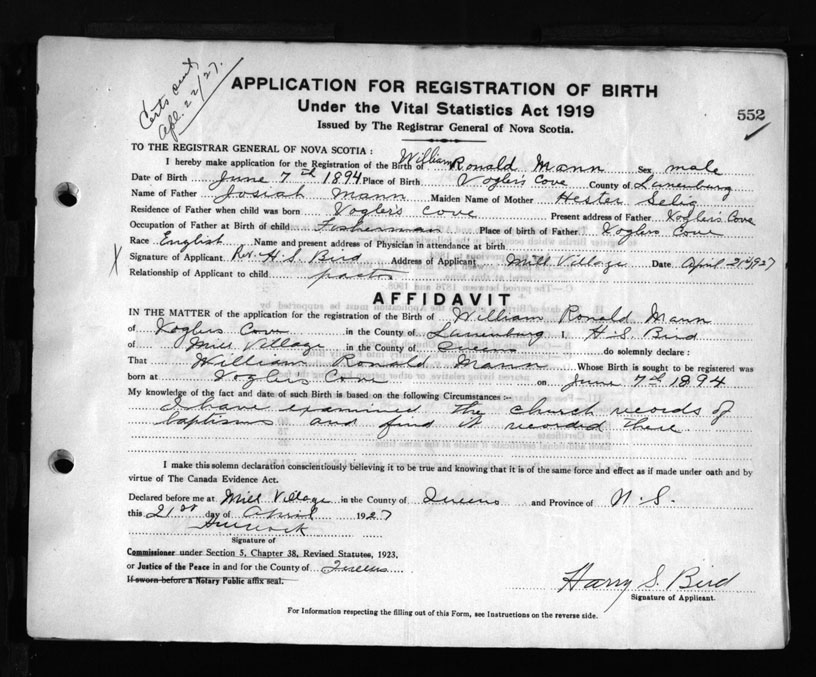 Certs sent
Apl. 22/27.
APPLICATION FOR REGISTRATION OF BIRTH
Under the Vital Statistics Act 1919
552
Issued by The Registrar General of Nova Scotia.
TO THE REGISTRAR GENERAL OF NOVA SCOTIA :
I hereby make application for the Registration of the Birth of William Ronald Mann Sex male
Date of Birth June 7th 1894 Place of Birth Vogler's Cove County of Lunenburg
Name of Father Josiah Mann Maiden Name of Mother Hester Selig
Residence of Father when child was born Voglers Cove Present address of Father Voglers Cove
Occupation of Father at Birth of child Fisherman Place of Birth of Father Voglers Cove
Race English Name and present address of Physician in attendance at birth
X Signature of Applicant Rev. H. S. Bird Address of Applicant Mill Village Date April 21st 1927
Relationship of Applicant to child pastor
AFFIDAVIT
IN THE MATTER of the application for the registration of the Birth of William Ronald Mann
of Voglers Cove in the County of Lunenburg I. H. S. Bird
of Mill Village in the County of Queens do solemnly declare :
That William Ronald Mann Whose Birth is sought to be registered was
born at Voglers Cove on June 7th 1894
My knowledge of the fact and date of such Birth is based on the following Circumstances :-
I have examined the church records of
baptisms and find it recorded there
I make this solemn declaration conscientiously believing it to be true and knowing that it is of the same force and effect as if made under oath and by
virtue of The Canada Evidence Act.
Declared before me at Mill Village in the County of Queens and Province of N. S.
this 21st day of April 1927
Signature of
Commissioner under Section 5, Chapter 38, Revised Statutes, 1923,
or Justice of the Peace in and for the County of Queens
If sworn before a Notary Public affix seal.
Harry S. Bird
Signature of Applicant.
For Information respecting the filling out of this Form, see Instructions on the reverse side.